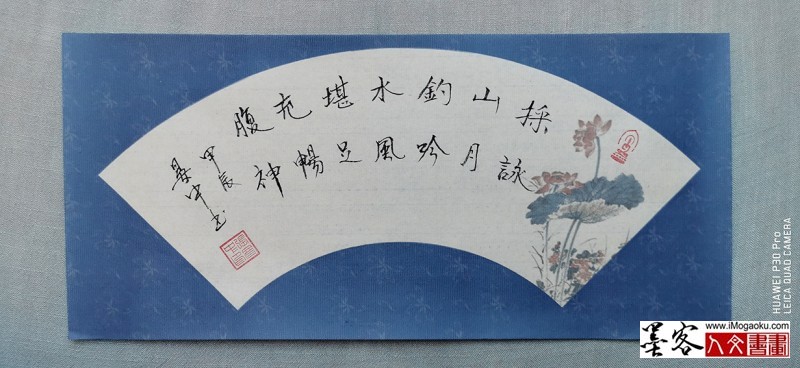 採山釣水堪充腹
詠月吟風足暢神
甲辰
中书
HUAWEI P30 Pro
LEICA QUAD CAMERA
www.iMogaoku.com
墨客人文書畫